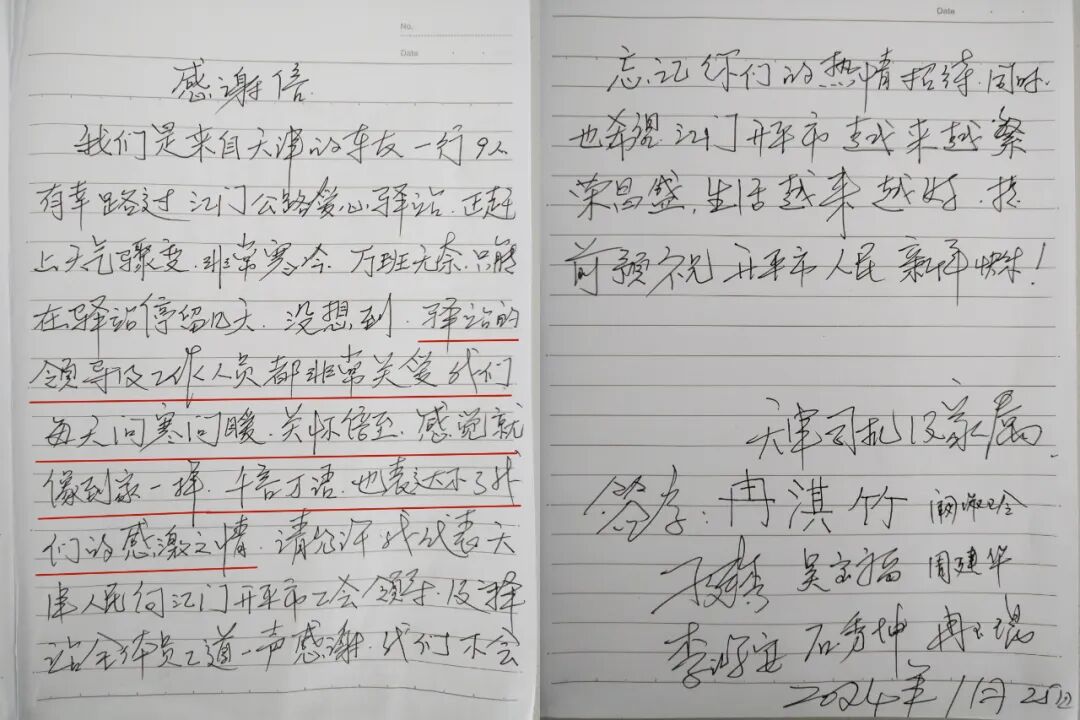 No.
Date
感谢信
我们是来自天津的车友一行9人
有幸路过江门公路爱心驿站.正赶
上天气骤变.非常寒冷.万般无奈.只能
在驿站停留几天.没想到.驿站的
领导及工作人员都非常关爱我们
每天问寒问暖.关怀倍至.感觉就
像到家一样.千言万语.也表达不了我
们的感激之情.请允许我代表天
津人民向江门开平市工会领导及驿
站全体员工道一声感谢.我们不会
Date
忘记你们的热情招待.同时.
也希望江门开平市越来越繁
荣昌盛.生活越来越好.提
前预祝开平市人民新年快乐!
天津司机及家属
签字:冉淇竹
吴宝福 周建华
李 石秀坤 冉
2024年1月25日